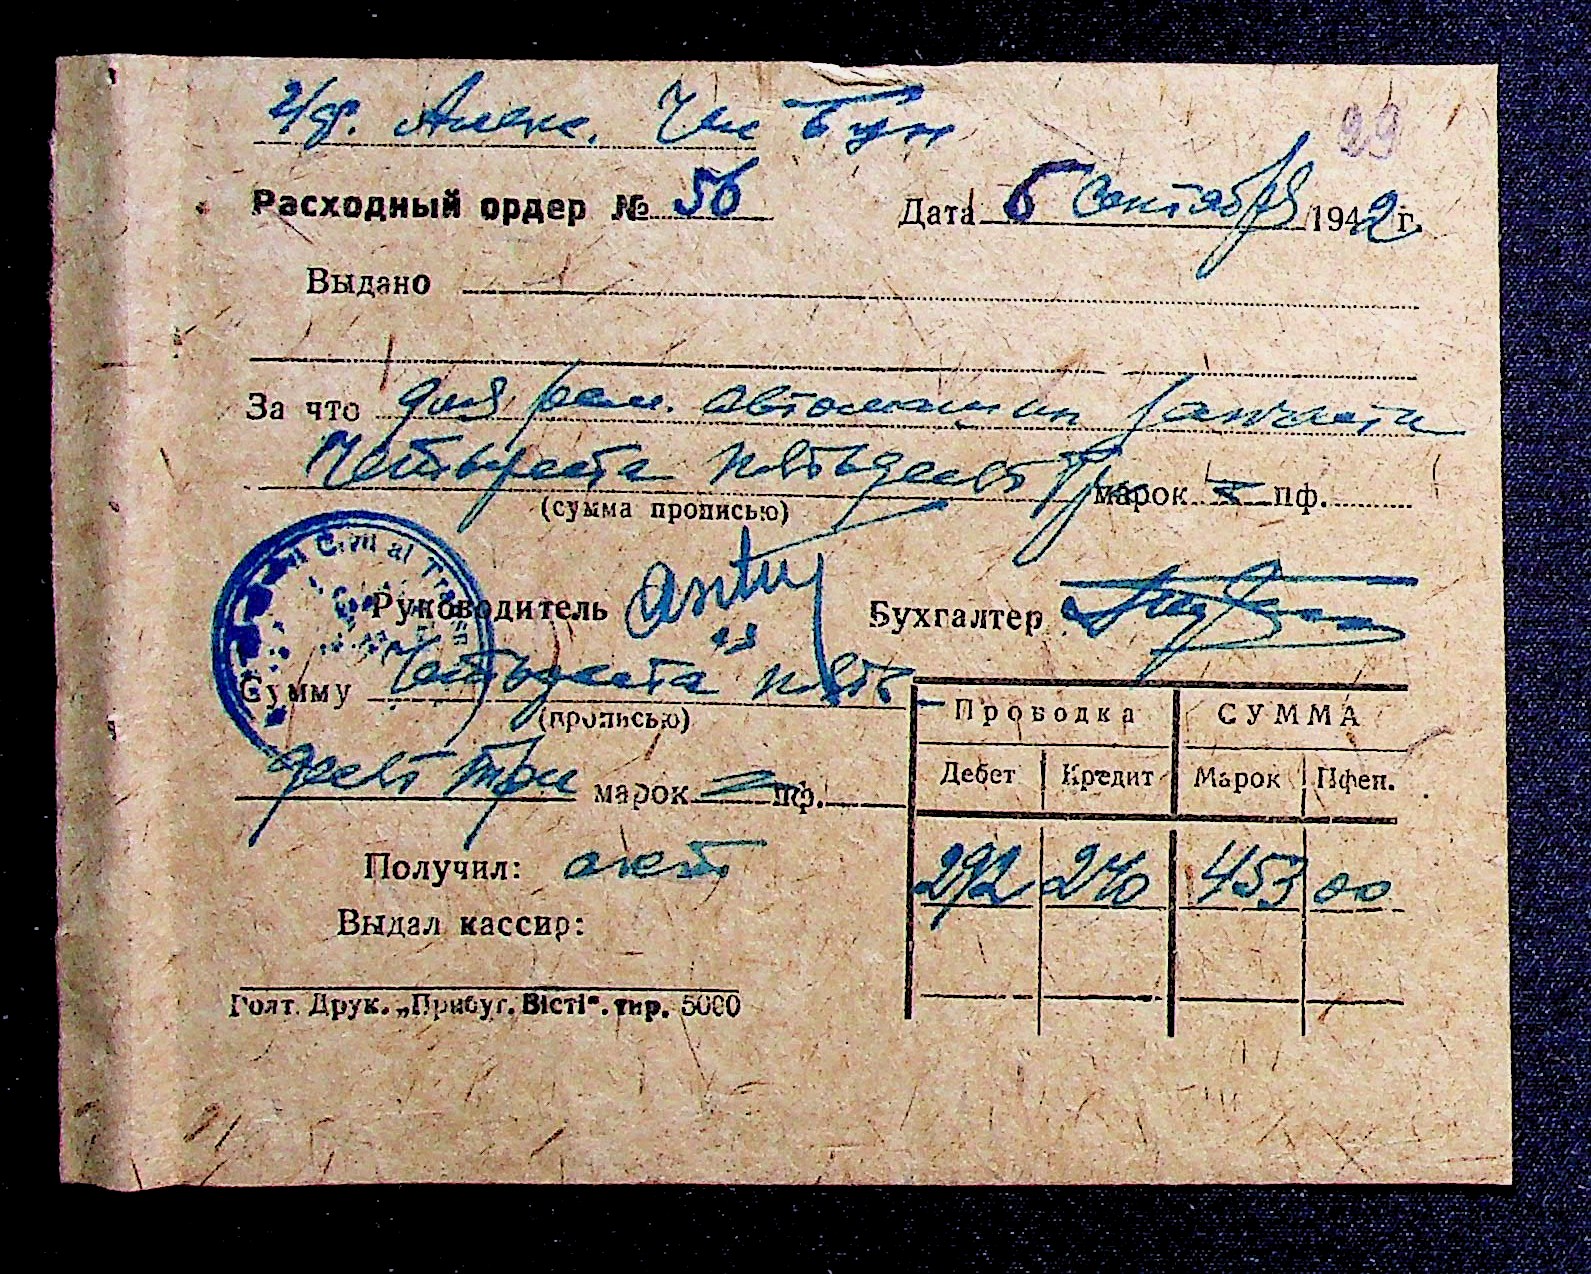 29
Расходный ордер № 56 Дата 6 Сентября 1942 г.
Выдано
За что для рем. автомашин запчасти
Четыреста пятьдесят три марок = пф.
(сумма прописью)
Civil al Tr
Руководитель Бухгалтер
Сумму Четыреста пять-
(прописью)
десят три марок = пф.
Проводка СУММА
Дебет Кредит Марок Пфен.
292 240 453 00
Получил:
Выдал кассир:
Голт. Друк. „Прибуг. Вісті“. тир. 5000